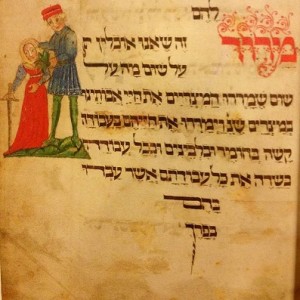 להם
מרור זה שאנו אוכלין
על שום מה על
שום שמררו המצריים את חיי אבותינו
במצרים שנ וימררו את חייהם בעבודה
קשה בחומר ובלבינים ובכל עבודה
בשדה את כל עבודתם אשר עבדו
בהם
בפרך